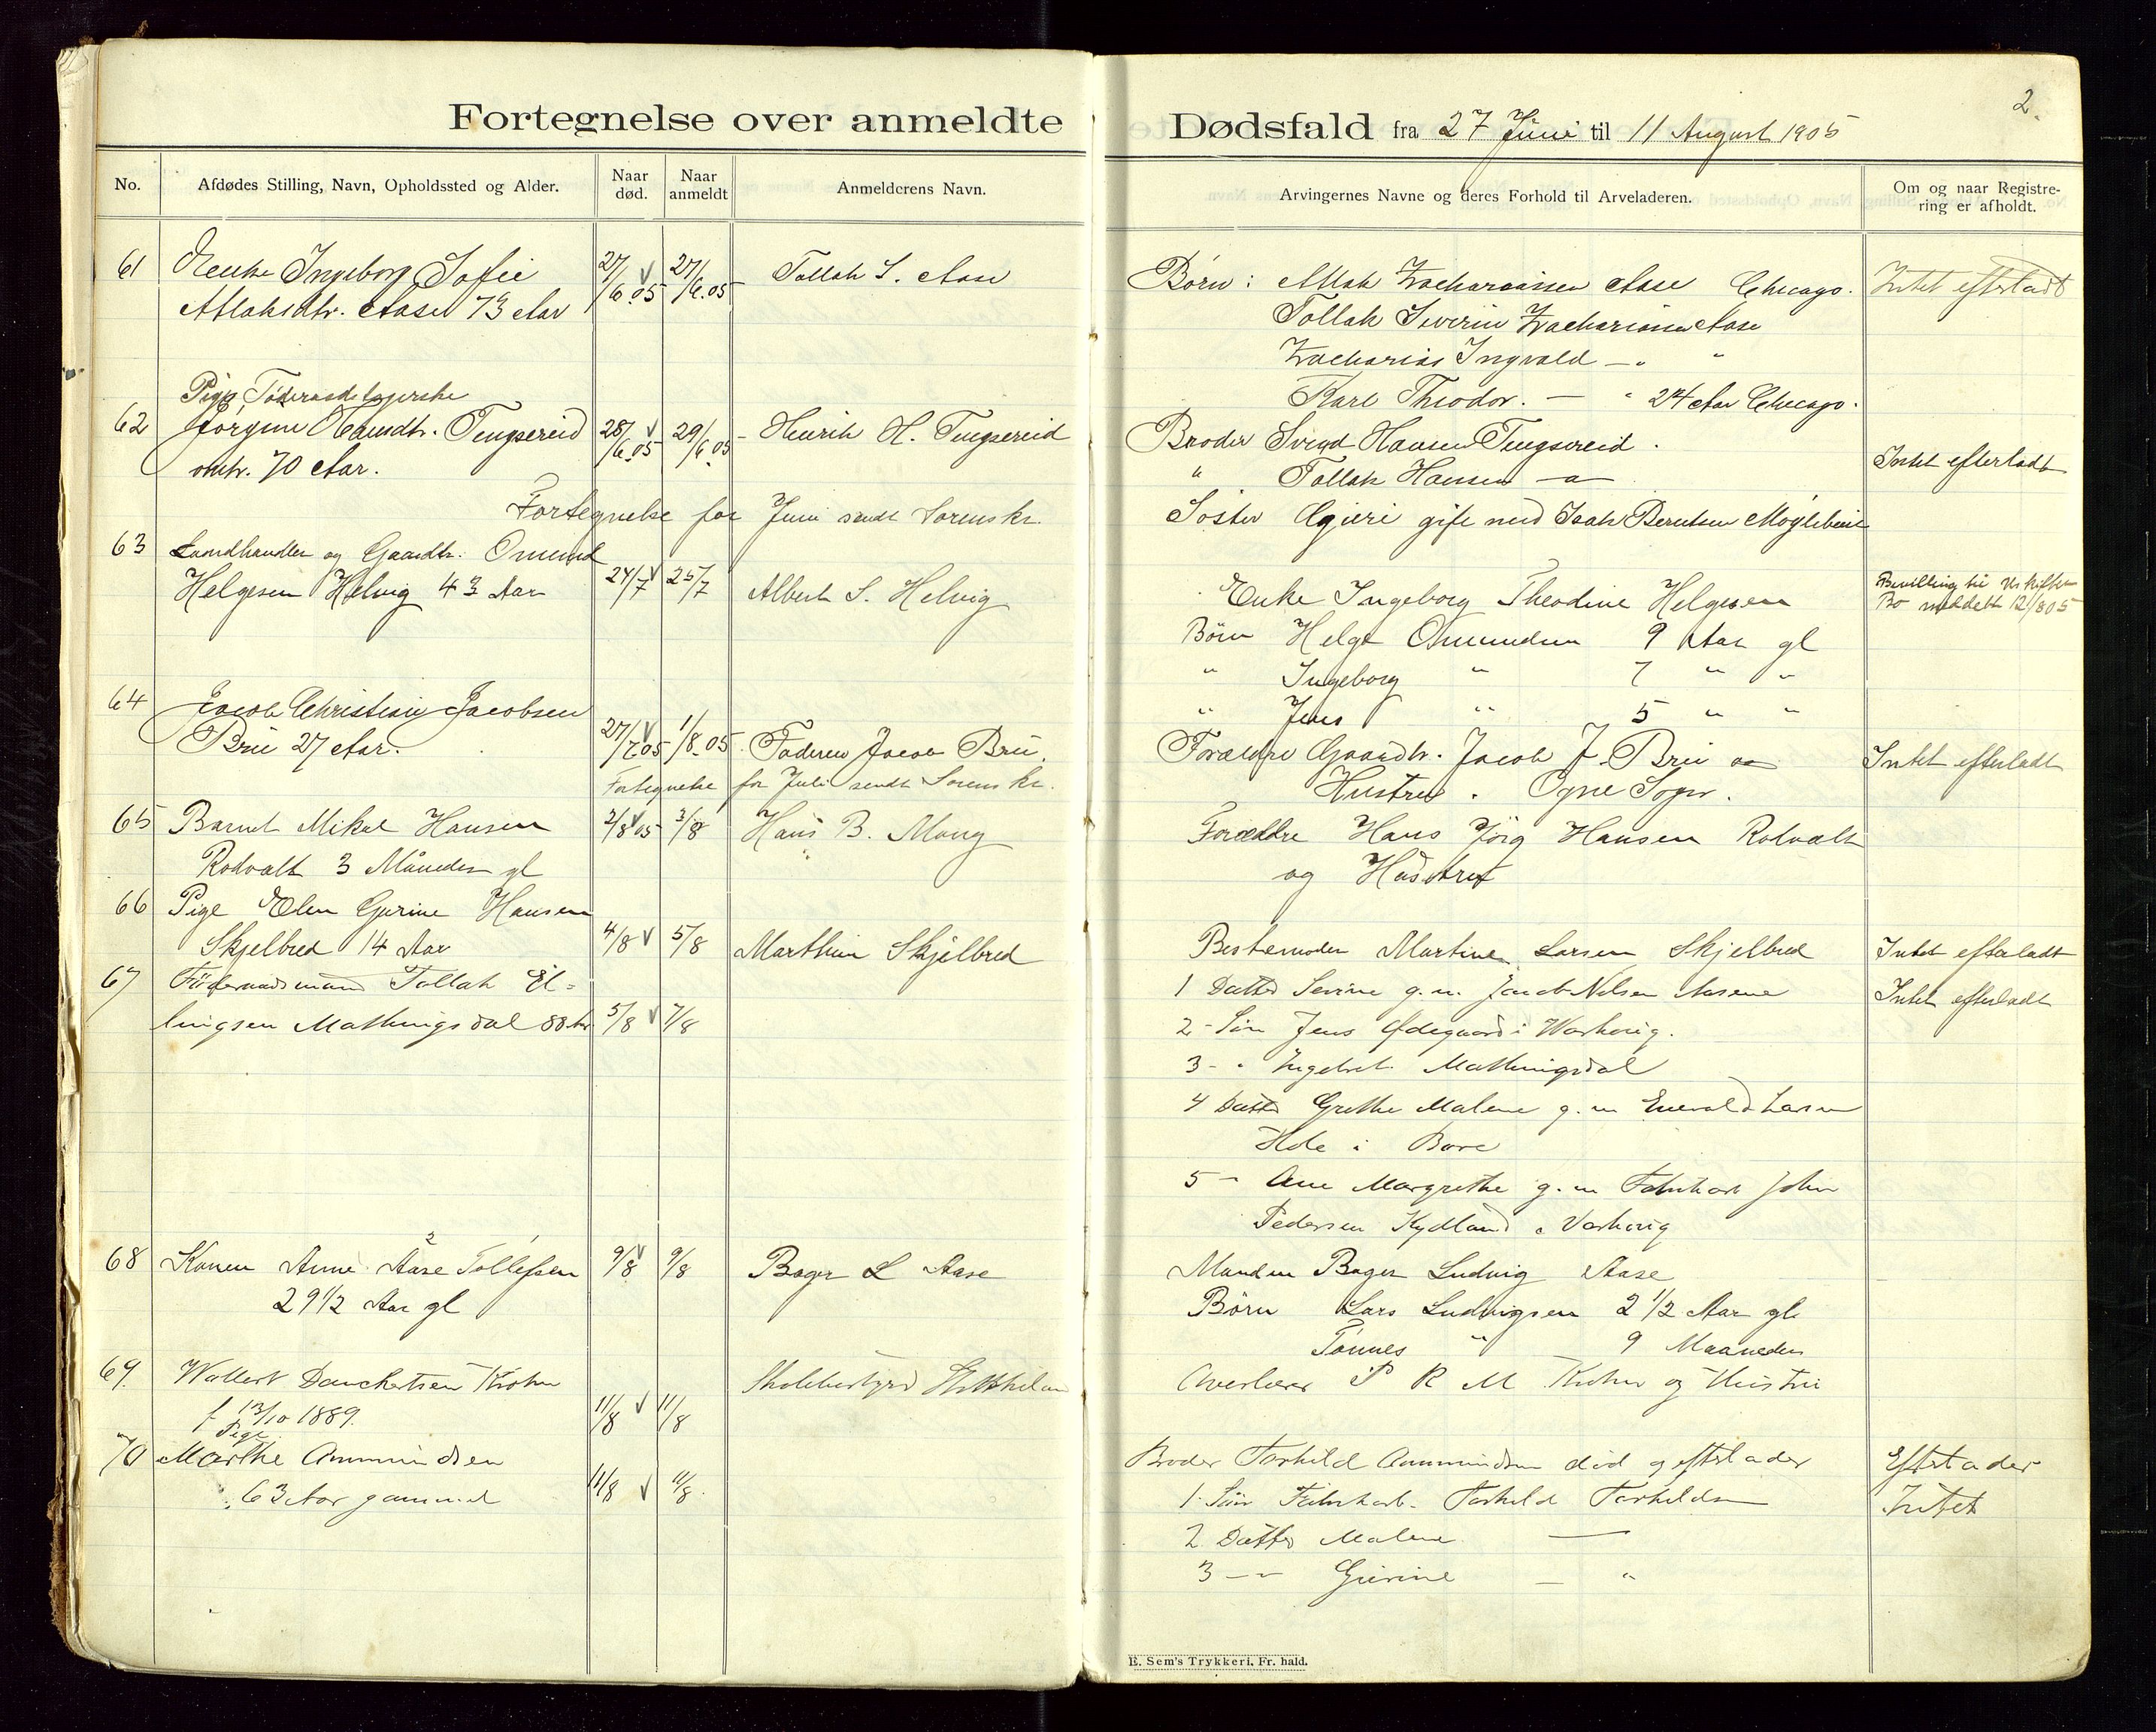 2.
Fortegnelse over anmeldte Dødsfald fra 27 Juni til 11 August 1905
No.
Afdødes Stilling, Navn, Opholdssted og Alder.
Naar død.
Naar anmeldt
Anmelderens Navn.
Arvingernes Navne og deres Forhold til Arveladeren.
Om og naar Registrering er afholdt.
61 Enke Ingeborg Sofie
Atlaksdtr. Aase 73 Aar
27/6 05 27/6.05 Tollak S. Aase
Børn: Atlak Zachariassen Aase Chicago.
Tollak Severin Zachariassen Aase
Zacharias Ingvald — " "
Karl Theodor. — " 24 Aar Chicago.
Intet efterladt
Pige,
62 Jörgine Hansdtr. Tengsereid
omtr. 70 Aar.
28/6.05 29/6 05 Henrik H. Tengsereid
Broder Svend Hansen Tengsereid.
" Tollak Hansen — " —
Söster gift med Isak Berntsen
Intet efterladt
Fortegnelse for Juni sendt Sorenskr.
63 Landhandler og Gaardbr. Omund
Helgesen Helvig 43 Aar
24/7 25/7 Albert S. Helvig
Enke Ingeborg Theodine Helgesen
Börn Helge Omundsen 9 Aar gl
" Ingeborg " 7 " "
" Jens " 5 " "
Bevilling til Uskiftet
Bo meddelt 12/8 05
64 Jacob Christian Jacobsen
Brü 27 Aar.
27/7.05 1/8.05 Faderen Jacob Brü.
Forældre Gaardbr. Jacob J. Brü og
Hustru. Ogne Sogn.
Intet efterladt
Fortegnelse for Juli sendt Sorenskr.
65 Barnet Mikal Hansen
Rodvalt 3 Måneder gl
2/8 05 3/8 Hans B. Mong
Forældre Hans Jörg Hansen Rodvalt
og Hustru
66 Pige Elen Gurine Hansen
Skjelbred 14 Aar
4/8 5/8 Marthin Skjelbred
Bestemoder Martine Larsen Skjelbred
Intet efterladt
67 Föderaadsmand Tollak El-
lingsen Mathingsdal 88 Aar
5/8 7/8
1 Datter Sevrine g.m. Jacob Nilsen Aasene
2 - Sön Jens Ødegaard i Varhoug.
3 - " Ingebret Mathingsdal
4 Datter Grethe Malene g.m Enevald Larsen
i Bore
5 - " Ane Margrethe g.m John
Pedersen Kydland i Varhoug
Intet efterladt
68 Konen Anne Aase Tollefsen
29 1/2 Aar gl
9/8 9/8 Bager L Aase
Manden Bager Ludvig Aase
Börn Lars Ludvigsen 2 1/2 Aar gl.
Tönnes " 9 Maaneder
69. Wollert Danckertsen Krohn
f 13/10 1889.
11/8 11/8
Overlærer P R M Krohn og Hustru
Pige
70 Marthe Ommundsen
63 Aar gammel
11/8 11/8.
Broder Torkild Ommundsen död og efterlader
1. Sön Torkild Torkildsen
2. Datter Malene —
3 — " Gurine — "
Efterlader
Intet
E. Sem's Trykkeri, Fr. hald.